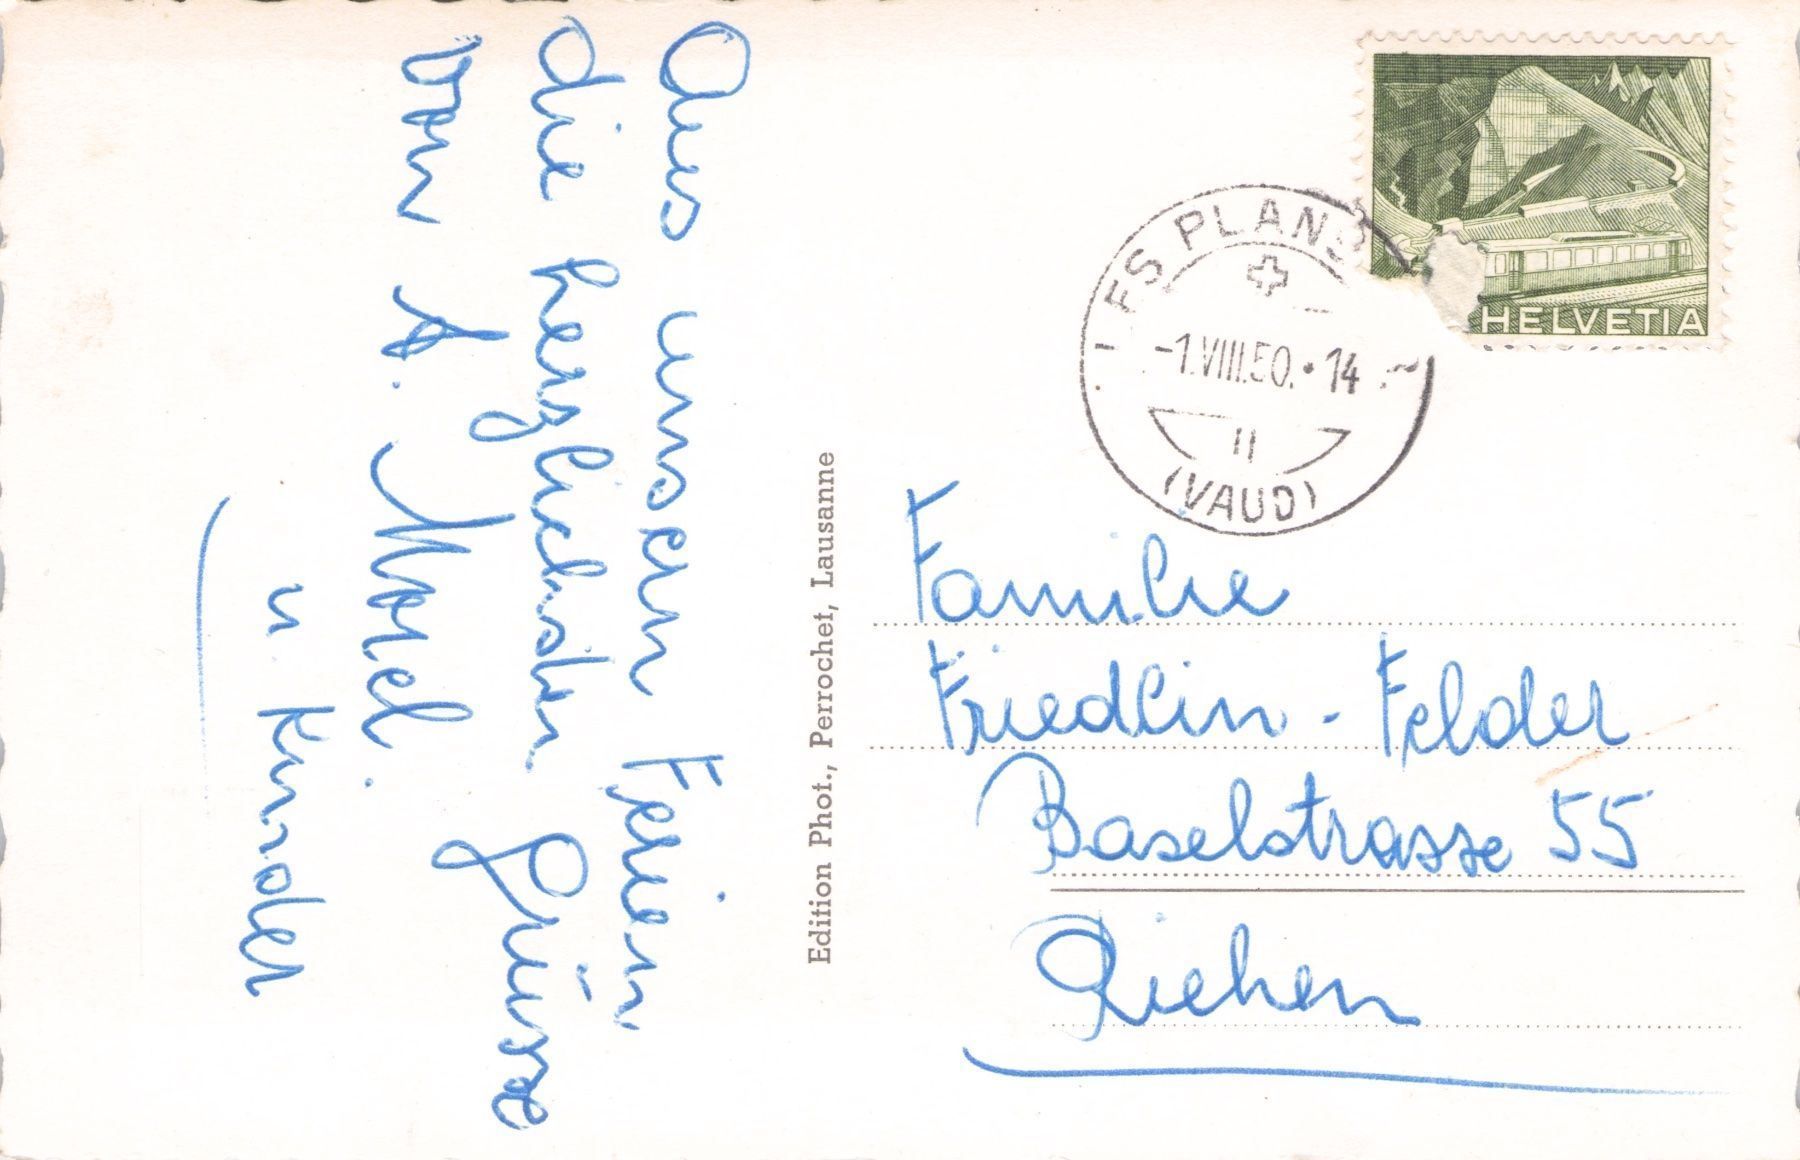 Aus unsern Ferien
die herzlichsten Grüsse
von A. Morel.
u. Kinder
Edition Phot., Perrochet, Lausanne
HELVETIA
LES PLANS
-1.VIII.50.•14
(VAUD)
Familie
Friedlin - Felder
Baselstrasse 55
Riehen